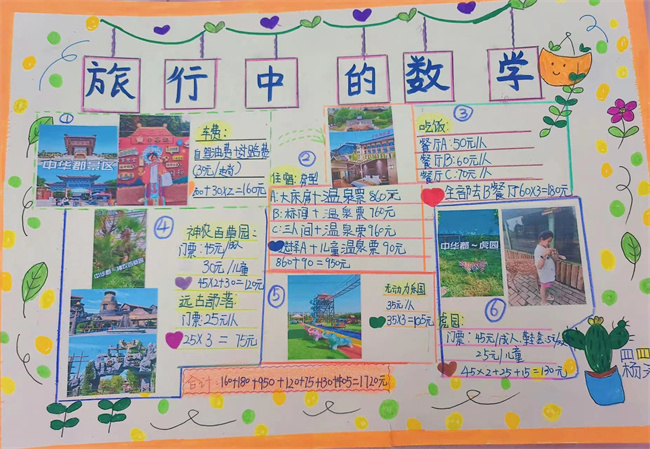 旅行中的数学
①
车费:
自驾油费+过路费
100+30×2=160元
中华郡景区
②
住宿:房型
A:大床房+温泉票860元
B:标间+温泉票760元
C:三人间+温泉票960元
选择A+儿童温泉票90元
860+90=950元
③
吃饭:
餐厅A:50元/人
餐厅B:60元/人
餐厅C:70元/人
午饭去B餐厅60×3=180元
④
神农百草园:
门票:45元/成人
30元/儿童
45×2+30=120元
远古部落:
门票25元/人
25×3=75元
⑤
无动力乐园
35元/人
35×3=105元
中华郡~虎园
⑥
虎园:
门票:45元/成人
25元/儿童
45×2+25+15=130元
合计:160+180+950+120+75+130+105=1720元